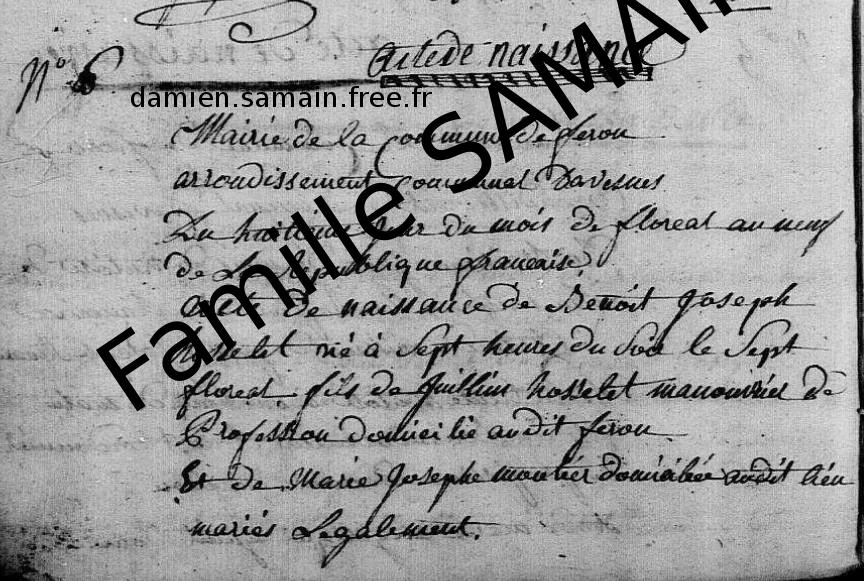 Acte de naissance
N° 6
damien.samain.free.fr
Famille SAMAIN
Mairie de la Commune de feron
arrondissement Communal Davesnes
Du huitième jour du mois de floreal an neuf
de La République française.
acte de naissance de Benoit Joseph
hosselet né à Sept heures du Soir le Sept
floreal fils de Guillin hosselet manouvrier de
Profession domicilié audit feron
Et de Marie Josephe moutier domiciliée audit lieu
mariés Legalement.